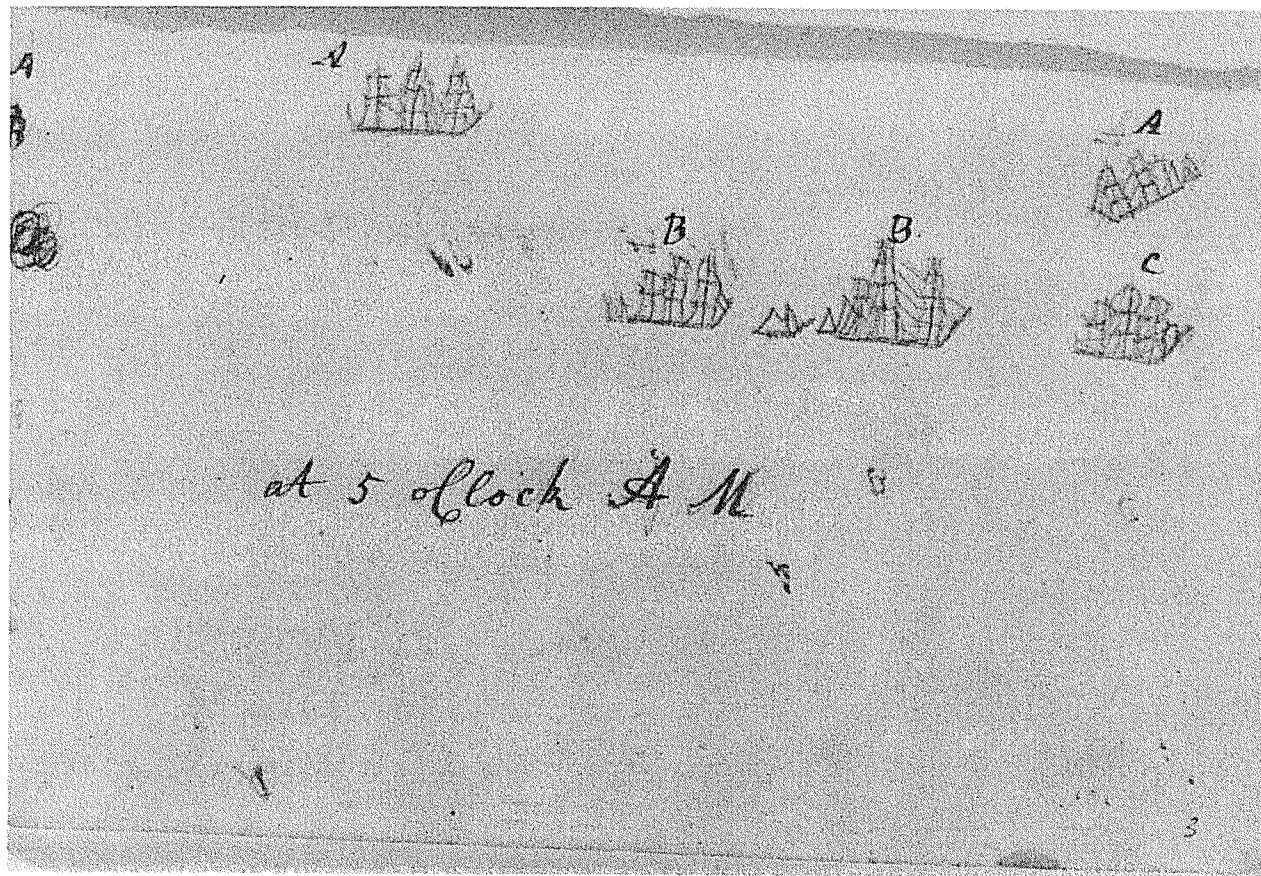 A A A
B B
C
at 5 oClock A M
3